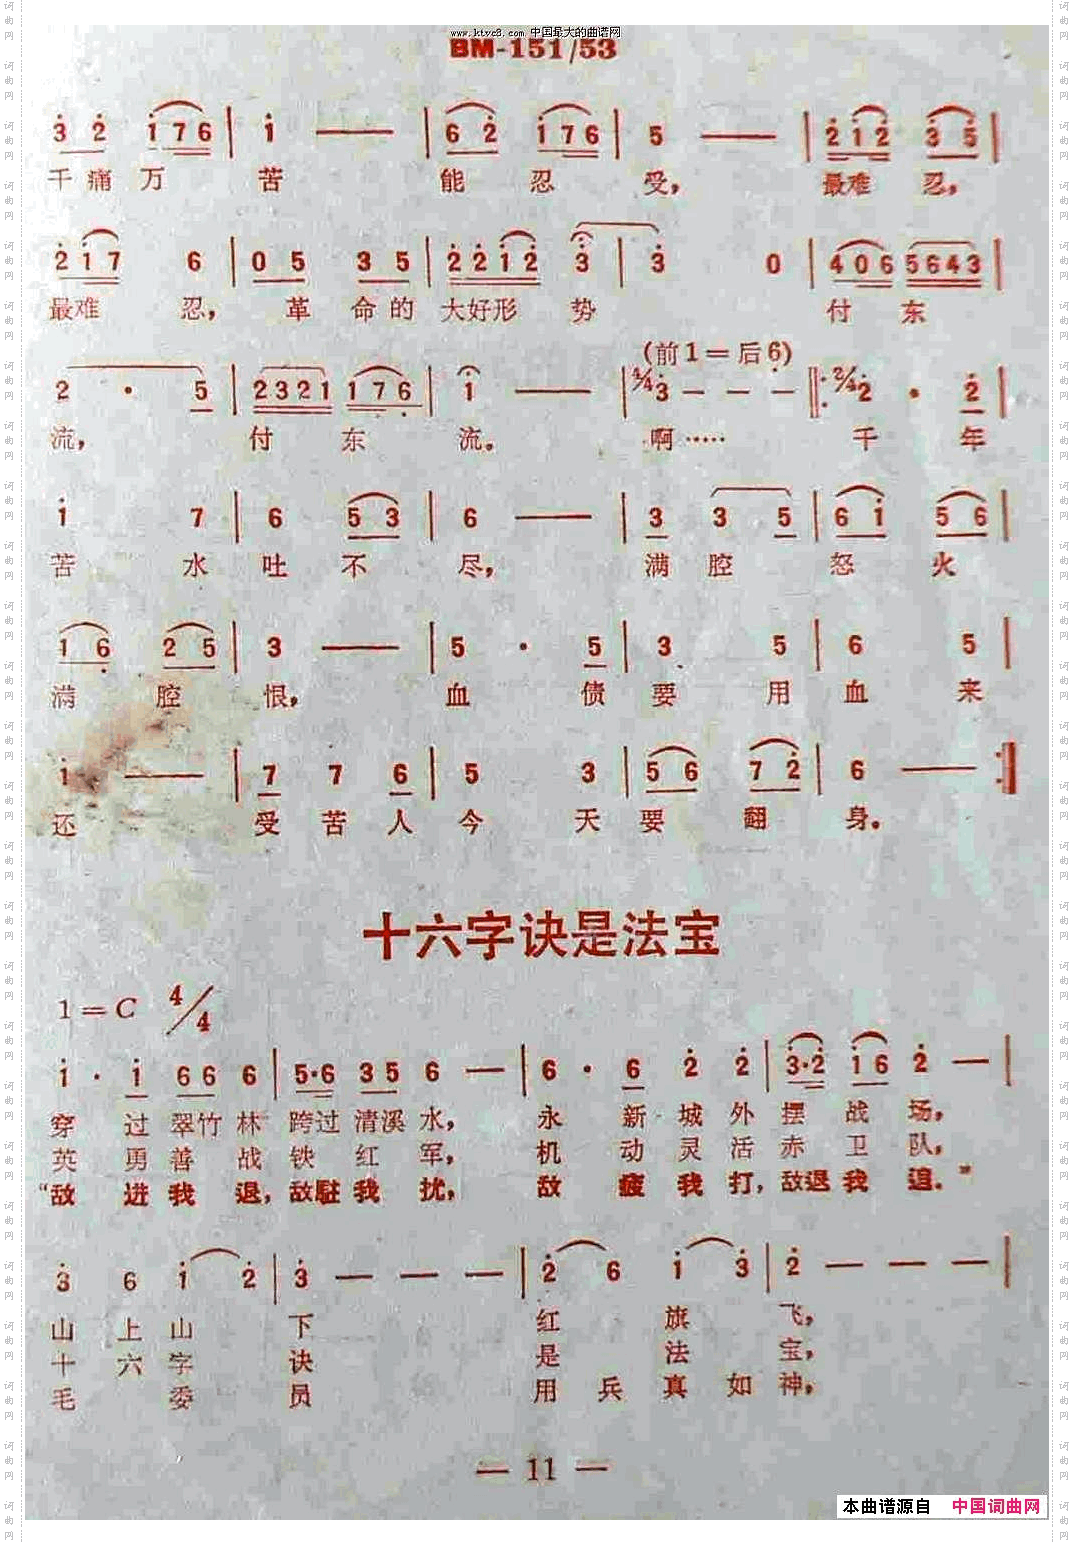 www.ktvc8.com 中国最大的曲谱网
BM-151/53
3 2 1 7 6 | 1 — | 6 2 1 7 6 | 5 — | 2 1 2 3 5 |
千痛万 苦 能 忍 受， 最难 忍，
2 1 7 6 | 0 5 3 5 | 2 2 1 2 3 | 3 0 | 4 0 6 5 6 4 3 |
最难 忍， 革 命的 大好形 势 付 东
(前1=后6)
2 · 5 | 2 3 2 1 1 7 6 | 1 — | 4/4 3 — — — |: 2/4 2 · 2 |
流， 付 东 流。 啊…… 千 年
1 7 | 6 5 3 | 6 — | 3 3 5 | 6 1 5 6 |
苦 水 吐 不 尽， 满 腔 怒 火
1 6 2 5 | 3 — | 5 · 5 | 3 5 | 6 5 |
满 腔 恨， 血 债 要 用 血 来
1 — | 7 7 6 | 5 3 | 5 6 7 2 | 6 — :|
还 受 苦 人 今 天 要 翻 身。
十六字诀是法宝
1=C 4/4
1 · 1 6 6 6 | 5·6 3 5 6 — | 6 · 6 2 2 | 3·2 1 6 2 — |
穿 过 翠竹 林 跨过 清溪 水， 永 新 城 外 摆 战 场，
英 勇 善 战 铁 红 军， 机 动 灵 活 赤 卫 队，
“敌 进 我 退，敌驻 我 扰， 敌 疲 我 打，敌退 我 追。”
3 6 1 2 | 3 — — — | 2 6 1 3 | 2 — — — |
山 上 山 下 红 旗 飞，
十 六 字 诀 是 法 宝，
毛 委 员 用 兵 真 如 神，
— 11 —
本曲谱源自 中国词曲网